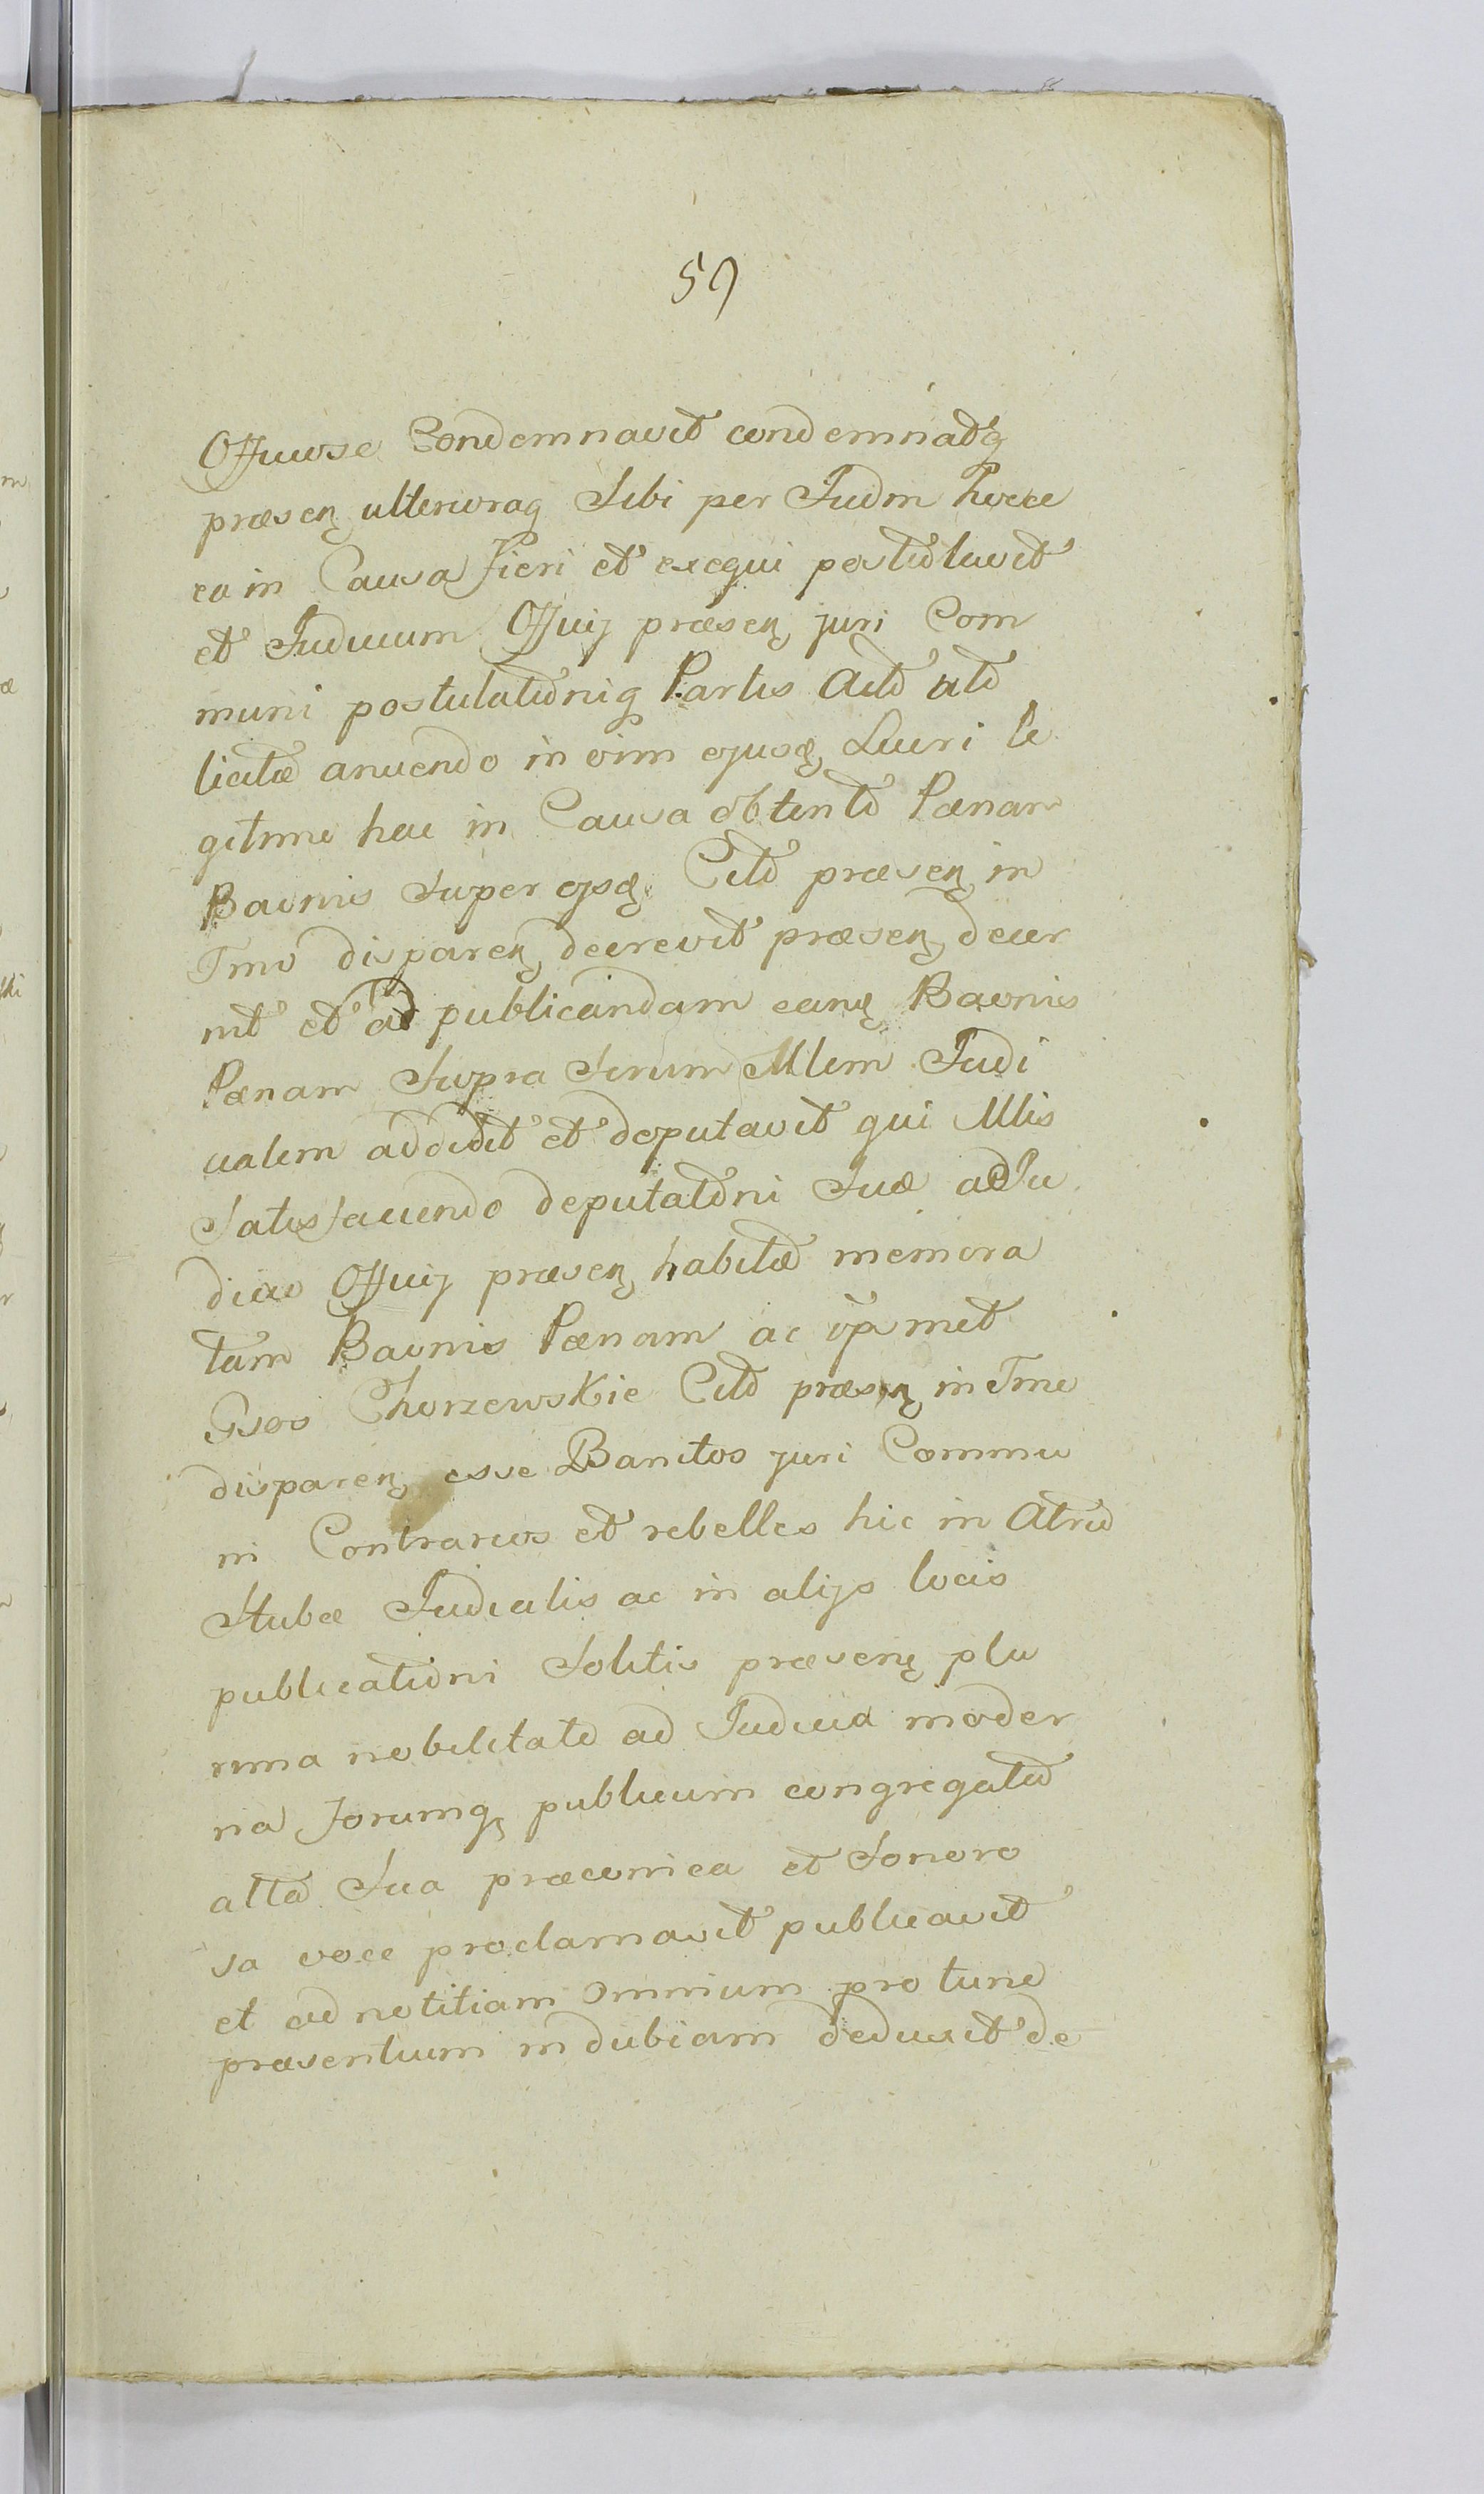 59
Officiose Condemnavit condemnatq
præsen ulterioraq Sibi per Judm hocce
ea in Causa fieri et exequi postulavit
et Judicium Officij præsen juri Com
muni postulationiq Partis Act ut
licitæ anuendo in vim ejusq Lucri le
gitime hac in Causa obtent Pœnam
Baonis Super ejsq Cit præsen in
Tmo disparen decrevit præsen decer
nit et ad publicandam eanq Baonis
Pœnam Supra Scrum Mlem Judi
cialem addidit et deputavit qui Mlis
Satisfaciendo deputationi Suæ a Ju
dicio Officij præsen habitæ memora
tam Baonis Pœnam ac ipsmet
Gsos Chorzewskie Cit præsen in Tmo
disparen esse Banitos juri Commu
ni Contrarios et rebelles hic in Atrio
Stubæ Judicialis ac in alijs locis
publicationi Solitis præsene plu
rima nobilitate ad Judicia moder
na forumq publicum congregata
alta Sua præconica et Sonoro
sa voce proclamavit publicavit
et ad notitiam omnium pro tunc
præsentium indubiam deduxit de